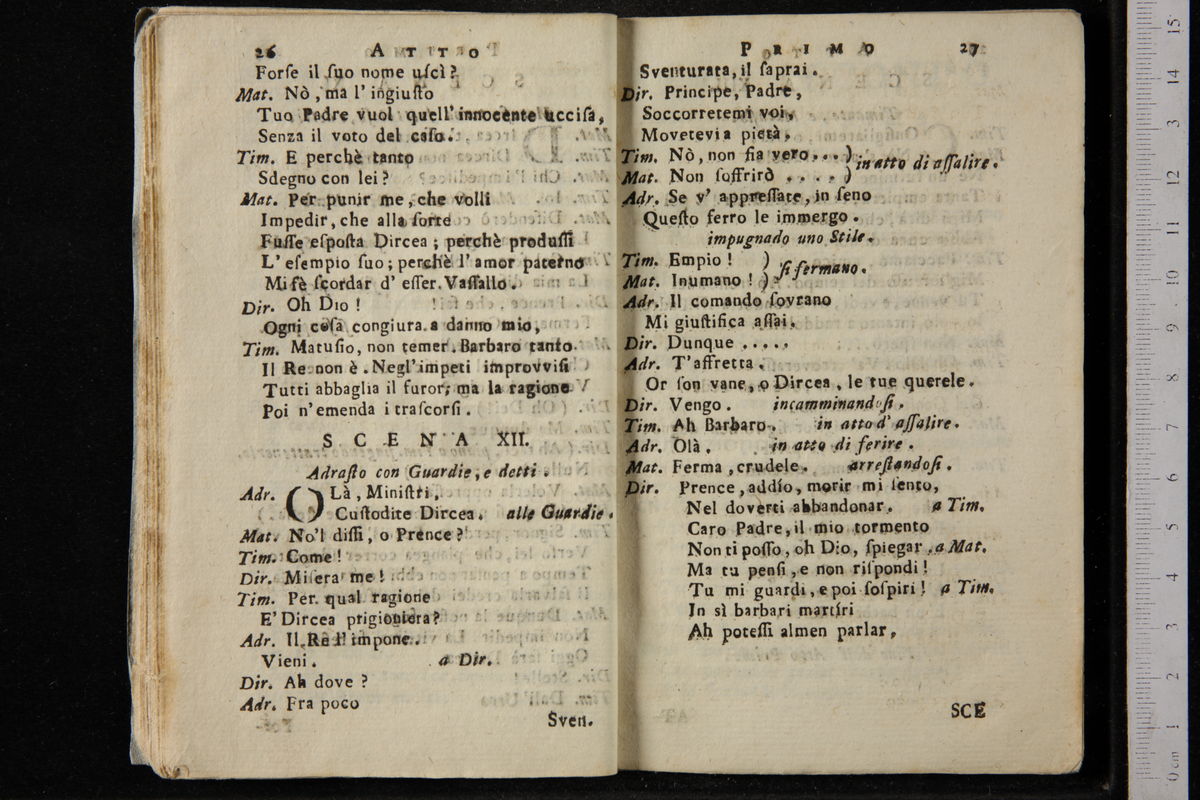 26 ATTO
Forſe il ſuo nome uſcì?
Mat. Nò, ma l' ingiuſto
Tuo Padre vuol quell' innocente ucciſa,
Senza il voto del caſo.
Tim. E perchè tanto
Sdegno con lei?
Mat. Per punir me, che volli
Impedir, che alla ſorte
Fuſſe eſpoſta Dircea; perchè produſſi
L' eſempio ſuo; perchè l' amor paterno
Mi fè ſcordar d' eſſer Vaſſallo.
Dir. Oh Dio!
Ogni coſa congiura a danno mio,
Tim. Matuſio, non temer. Barbaro tanto
Il Re non è. Negl' impeti improvviſi
Tutti abbaglia il furor; ma la ragione
Poi n' emenda i traſcorſi.
SCENA XII.
Adraſto con Guardie, e detti.
Adr. OLà, Miniſtri,
Cuſtodite Dircea. alle Guardie.
Mat. No'l diſſi, o Prence?
Tim. Come!
Dir. Miſera me!
Tim. Per qual ragione
E' Dircea prigioniera?
Adr. Il Re l' impone.
Vieni. a Dir.
Dir. Ah dove?
Adr. Fra poco
Sven.
PRIMO 27
Sventurata, il ſaprai.
Dir. Principe, Padre,
Soccorretemi voi,
Movetevi a pietà.
Tim. Nò, non ſia vero...) in atto di aſſalire.
Mat. Non ſoffrirò ....)
Adr. Se v' appreſſate, in ſeno
Queſto ferro le immergo.
impugnado uno Stile.
Tim. Empio! ) ſi fermano.
Mat. Inumano! )
Adr. Il comando ſovrano
Mi giuſtifica aſſai.
Dir. Dunque .....
Adr. T'affretta.
Or ſon vane, o Dircea, le tue querele.
Dir. Vengo. incamminandoſi.
Tim. Ah Barbaro. in atto d' aſſalire.
Adr. Olà. in atto di ferire.
Mat. Ferma, crudele. arreſtandoſi.
Dir. Prence, addío, morir mi ſento,
Nel doverti abbandonar. a Tim.
Caro Padre, il mio tormento
Non ti poſſo, oh Dio, ſpiegar. a Mat.
Ma tu penſi, e non riſpondi!
Tu mi guardi, e poi ſoſpiri! a Tim.
In sì barbari martíri
Ah poteſſi almen parlar,
SCE